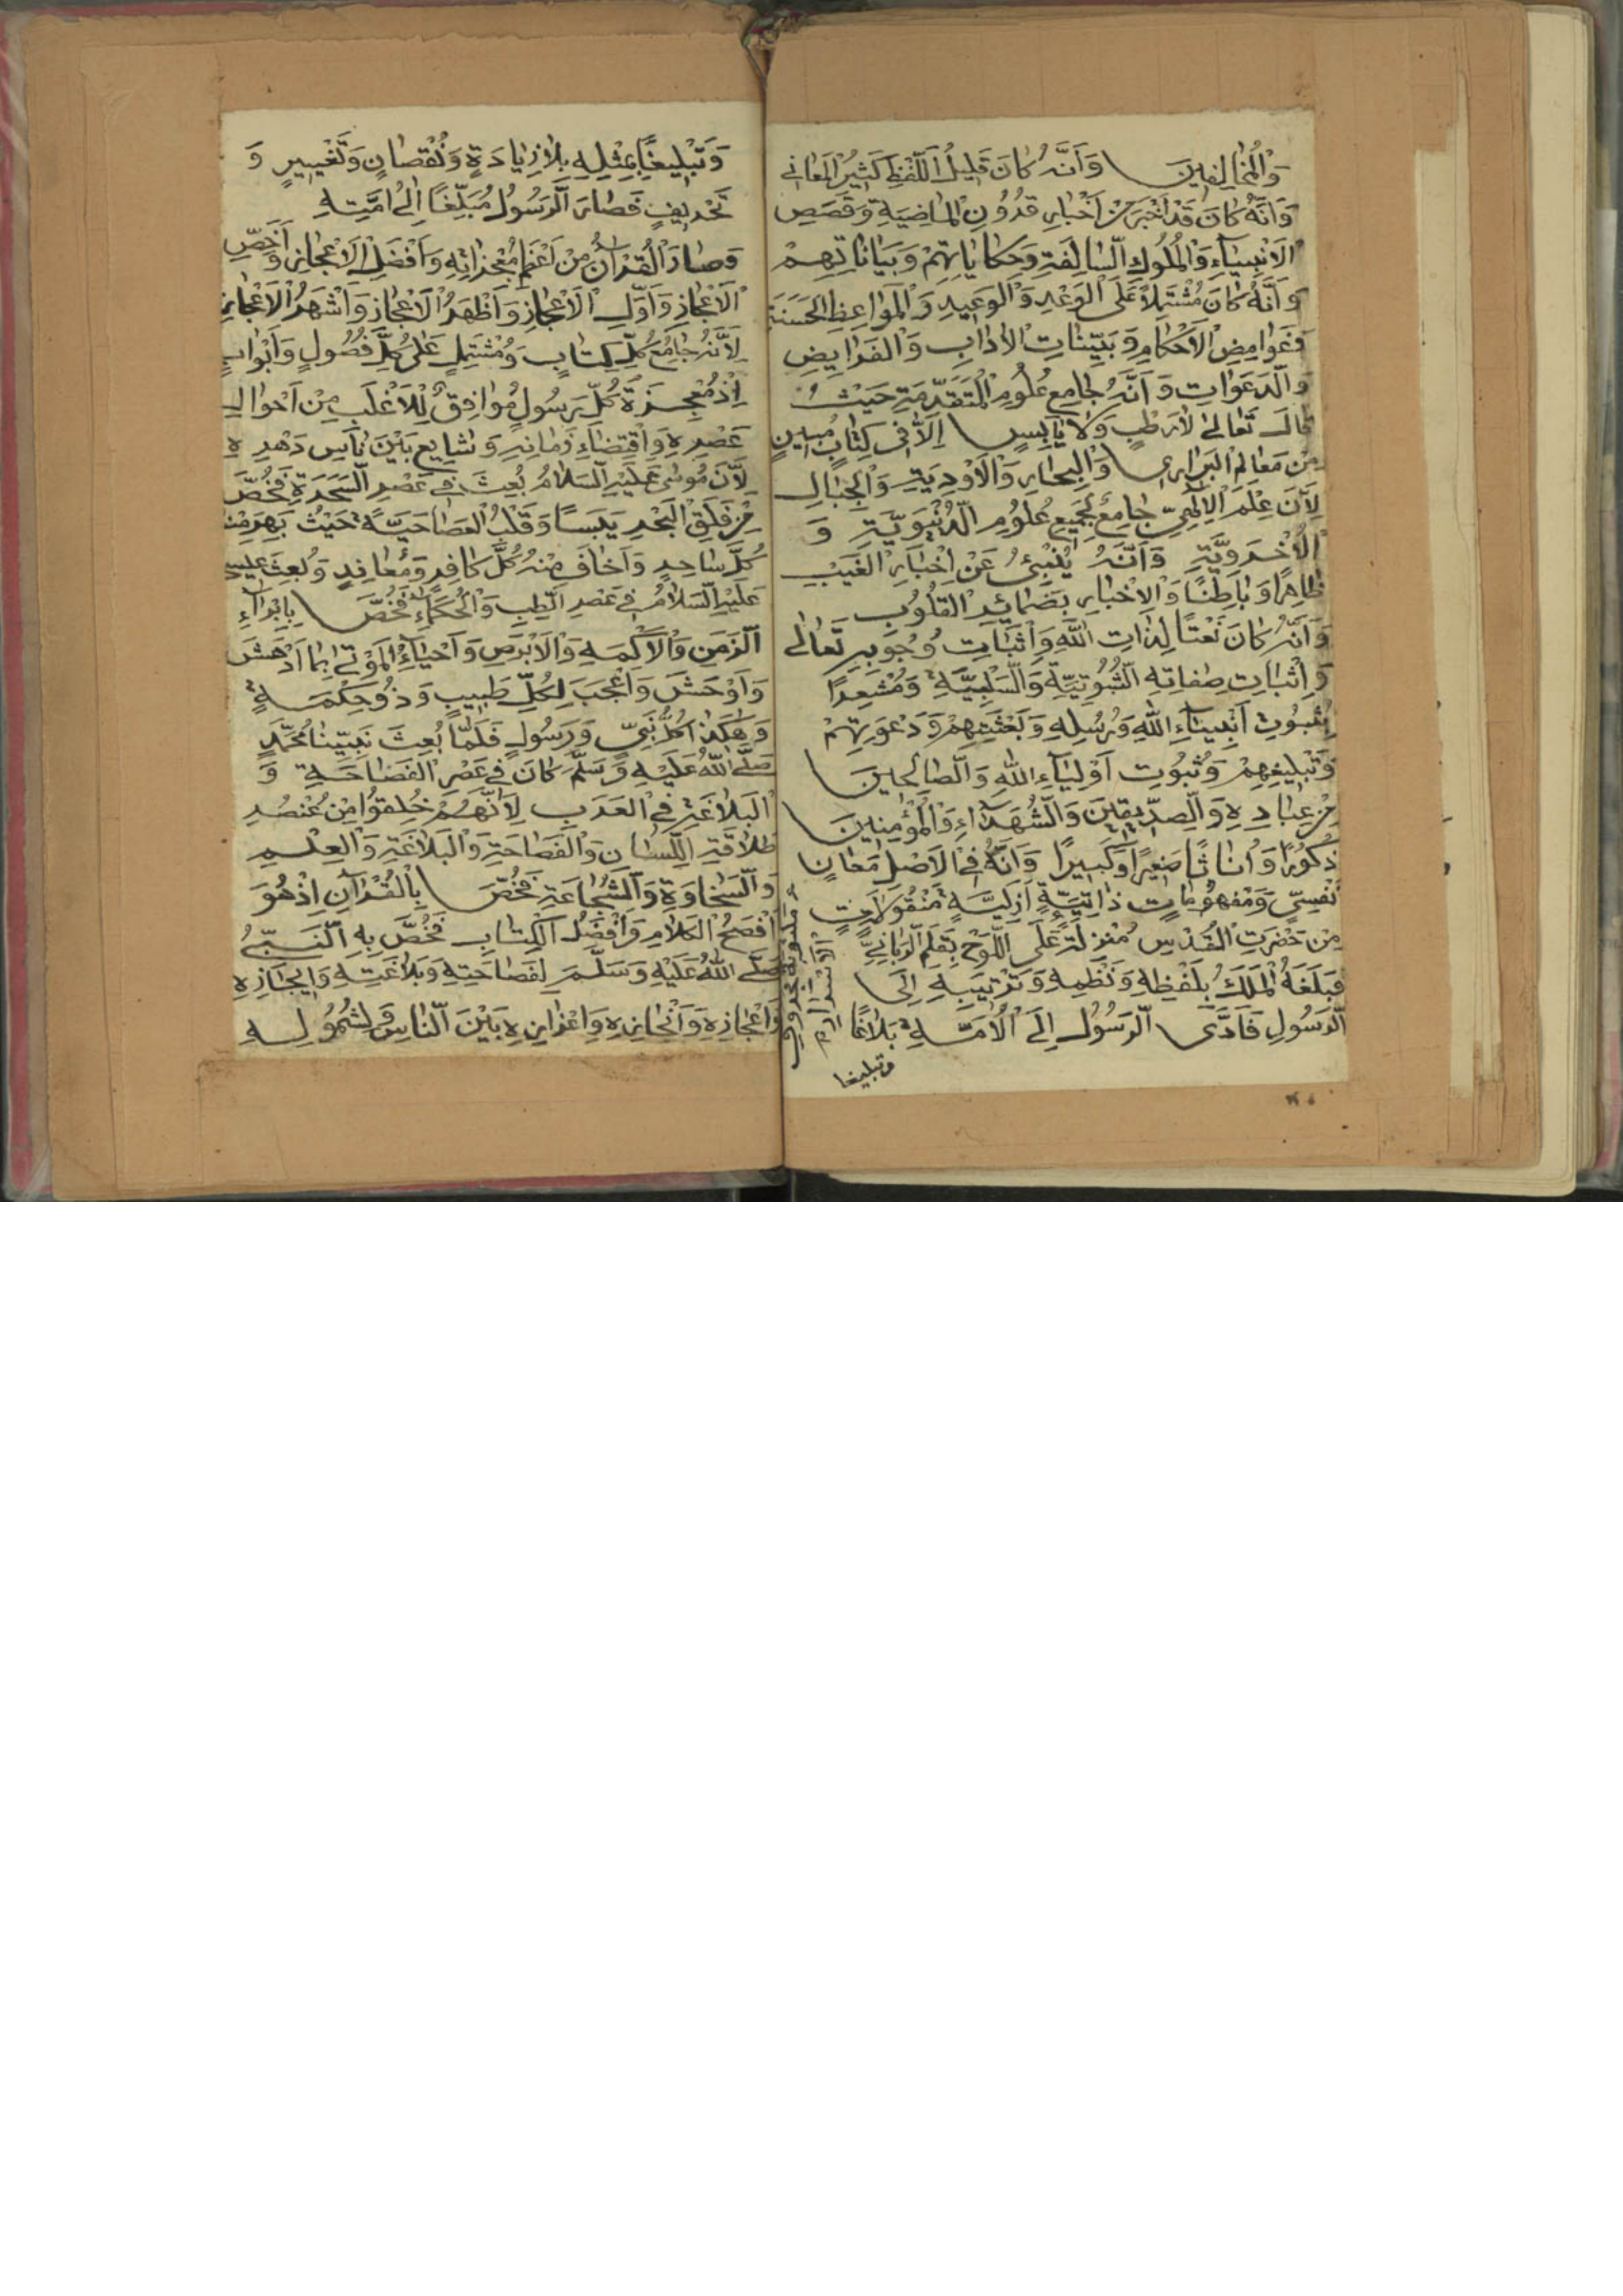 وَالْمُخَالِفِينَ وَأَنَّهُ كَانَ قَلِيلُ اللَّفْظِ كَثِيرُ الْمَعَانِي
وَأَنَّهُ كَانَ قَدْ أَخْبَرَ عَنْ أَخْبَارِ قُرُونِ الْمَاضِيَةِ وَقَصَصِ
الْأَنْبِيَاءِ وَالْمُلُوكِ السَّالِفَةِ وَحِكَايَاتِهِمْ وَبَيَانَاتِهِمْ
وَأَنَّهُ كَانَ مُشْتَمِلًا عَلَى الْوَعْدِ وَالْوَعِيدِ وَالْمَوَاعِظِ الْحَسَنَةِ
وَغَوَامِضِ الْأَحْكَامِ وَبَيِّنَاتِ الْآدَابِ وَالْفَرَايِضِ
وَالدَّعَوَاتِ وَأَنَّهُ جَامِعُ عُلُومِ الْمُتَقَدِّمَةِ حَيْثُ
قَالَ تَعَالَى لَا رَطْبٍ وَلَا يَابِسٍ إِلَّا فِي كِتَابٍ مُبِينٍ
مِنْ مَعَالِمِ الْبَرَارِي وَالْبِحَارِ وَالْأَوْدِيَةِ وَالْجِبَالِ
لِأَنَّ عِلْمَ الْإِلٰهِيِّ جَامِعُ لِجَمِيعِ عُلُومِ الدُّنْيَوِيَّةِ وَ
الْأُخْرَوِيَّةِ وَأَنَّهُ يُنْبِئُ عَنْ اِخْبَارِ الْغَيْبِ
ظَاهِرًا وَبَاطِنًا وَالْاِخْبَارِ بِضَمَائِرِ الْقُلُوبِ
وَأَنَّهُ كَانَ نَعْتًا لِذَاتِ اللّٰهِ وَاِثْبَاتِ وُجُوبِهِ تَعَالَى
وَاِثْبَاتِ صِفَاتِهِ الثُّبُوتِيَّةِ وَالسَّلْبِيَّةِ وَمُشْعِرًا
بِثُبُوتِ أَنْبِيَاءِ اللّٰهِ وَرُسُلِهِ وَبَعْثَتِهِمْ وَدَعْوَتِهِمْ
وَتَبْلِيغِهِمْ وَثُبُوتِ أَوْلِيَاءِ اللّٰهِ وَالصَّالِحِينَ
مِنْ عِبَادِهِ وَالصِّدِّيقِينَ وَالشُّهَدَاءِ وَالْمُؤْمِنِينَ
ذُكُورًا وَأُنَاثًا صَغِيرًا وَكَبِيرًا وَأَنَّهُ فِي الْأَصْلِ مَعَانٍ
نَفْسِيٍّ وَمَفْهُومَاتٍ ذَاتِيَّةٍ أَزَلِيَّةٍ مَنْقُولَاتٍ
مِنْ حَضْرَتِ الْقُدْسِ مُنْزَلَةٍ عَلَى اللَّوْحِ بِقَلَمِ الرَّبَّانِيِّ
فَبَلَغَهُ الْمَلَكُ بِلَفْظِهِ وَنَظْمِهِ وَتَرْتِيبِهِ إِلَى
الرَّسُولِ فَأَدَّى الرَّسُولُ إِلَى الْأُمَّةِ بَلَاغًا
وتبليغا
وَتَبْلِيغًا بِمِثْلِهِ بِلَا زِيَادَةٍ وَنُقْصَانٍ وَتَغْيِيرٍ وَ
تَحْرِيفٍ فَصَارَ الرَّسُولُ مُبَلِّغًا إِلَى أُمَّتِهِ
وَصَارَ الْقُرْآنُ مِنْ أَعْظَمِ مُعْجِزَاتِهِ وَأَفْضَلِ الْاَعْجَازِ وَأَخَصِّ
الْاَعْجَازِ وَأَوَّلِ الْاَعْجَازِ وَأَظْهَرُ الْاَعْجَازِ وَأَشْهَرُ الْاَعْجَازِ
لِأَنَّهُ جَامِعُ كُلِّ كِتَابٍ وَمُشْتَمِلٍ عَلَى كُلِّ فُصُولٍ وَأَبْوَابٍ
إِذْ مُعْجِزَةُ كُلِّ رَسُولٍ مُوَافِقٌ لِلْأَغْلَبِ مِنْ أَحْوَالِ
عَصْرِهِ وَاقْتِضَاءِ زَمَانِهِ وَشَايِعٍ بَيْنَ نَاسِ دَهْرِهِ
لِأَنَّ مُوسَى عَلَيْهِ السَّلَامُ بُعِثَ فِي عَصْرِ السَّحَرَةِ فَخُصَّ
مِنْ فَلَقِ الْبَحْرِ يَبَسًا وَقَلْبِ الْعَصَا حَيَّةً حَيْثُ بَهَرَ مِنْهُ
كُلَّ سَاحِرٍ وَأَخَافَ مِنْهُ كُلَّ كَافِرٍ وَمُعَانِدٍ وَبُعِثَ عِيسَى
عَلَيْهِ السَّلَامُ فِي عَصْرِ الطِّبِّ وَالْحُكَمَاءِ فَخُصَّ بِإِبْرَاءِ
الزَّمِنِ وَالْأَكْمَهِ وَالْأَبْرَصِ وَأَحْيَاءِ الْمَوْتَى بِمَا أَدْهَشَ
وَأَوْحَشَ وَأَعْجَبَ لِكُلِّ طَبِيبٍ وَذُو حِكْمَةٍ
وَهٰكَذَا كُلُّ نَبِيٍّ وَرَسُولٍ فَلَمَّا بُعِثَ نَبِيِّنَا مُحَمَّدٍ
صَلَّى اللّٰهُ عَلَيْهِ وَسَلَّمَ كَانَ فِي عَصْرِ الْفَصَاحَةِ وَ
الْبَلَاغَةِ فِي الْعَرَبِ لِأَنَّهُمْ خُلِقُوا مِنْ عُنْصُرِ
طَلَاقَةِ اللِّسَانِ وَالْفَصَاحَةِ وَالْبَلَاغَةِ وَالْعِلْمِ
وَالسَّخَاوَةِ وَالشَّجَاعَةِ فَخُصَّ بِالْقُرْآنِ إِذْ هُوَ
أَفْصَحُ الْكَلَامِ وَأَفْضَلُ الْكِتَابِ فَخُصَّ بِهِ النَّبِيُّ
صَلَّى اللّٰهُ عَلَيْهِ وَسَلَّمَ لِفَصَاحَتِهِ وَبَلَاغَتِهِ وَإِيجَازِهِ
وَاَعْجَازِهِ وَأَنْجَازِهِ وَاِعْزَازِهِ بَيْنَ النَّاسِ وَلِشُمُولِهِ